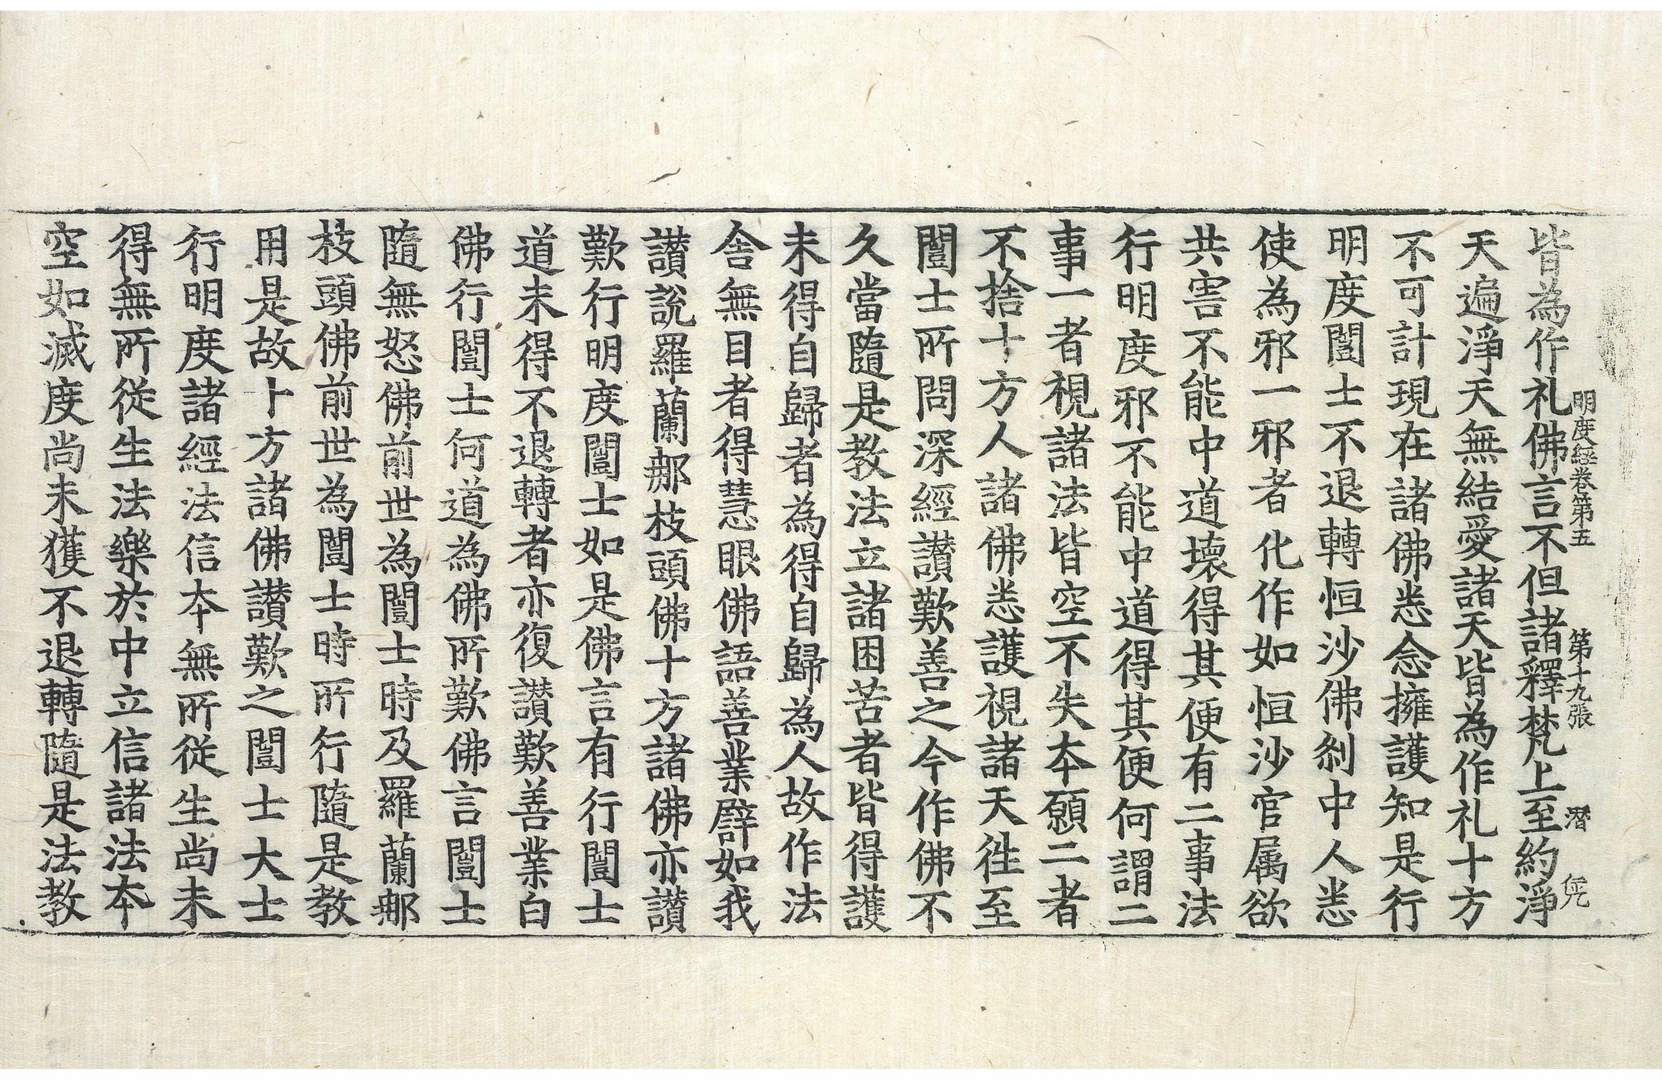 明度經卷第五 第十九張 潜
皆為作礼佛言不但諸釋梵上至約淨
天遍淨天無結愛諸天皆為作礼十方
不可計現在諸佛悉念擁護知是行
明度闓士不退轉恒沙佛刹中人悉
使為邪一邪者化作如恒沙官属欲
共害不能中道壊得其便有二事法
行明度邪不能中道得其便何謂二
事一者視諸法皆空不失夲願二者
不捨十方人諸佛悉護視諸天徃至
闓士所問深經讃歎善之今作佛不
久當隨是教法立諸困苦者皆得護
未得自歸者為得自歸為人故作法
舍無目者得慧眼佛語善業譬如我
讃說羅蘭那枝頭佛十方諸佛亦讃
歎行明度闓士如是佛言有行闓士
道未得不退轉者亦復讃歎善業白
佛行闓士何道為佛所歎佛言闓士
隨無怒佛前世為闓士時及羅蘭那
枝頭佛前世為闓士時所行隨是教
用是故十方諸佛讃歎之闓士大士
行明度諸經法信夲無所従生尚未
得無所従生法樂於中立信諸法夲
空如滅度尚未獲不退轉隨是法教